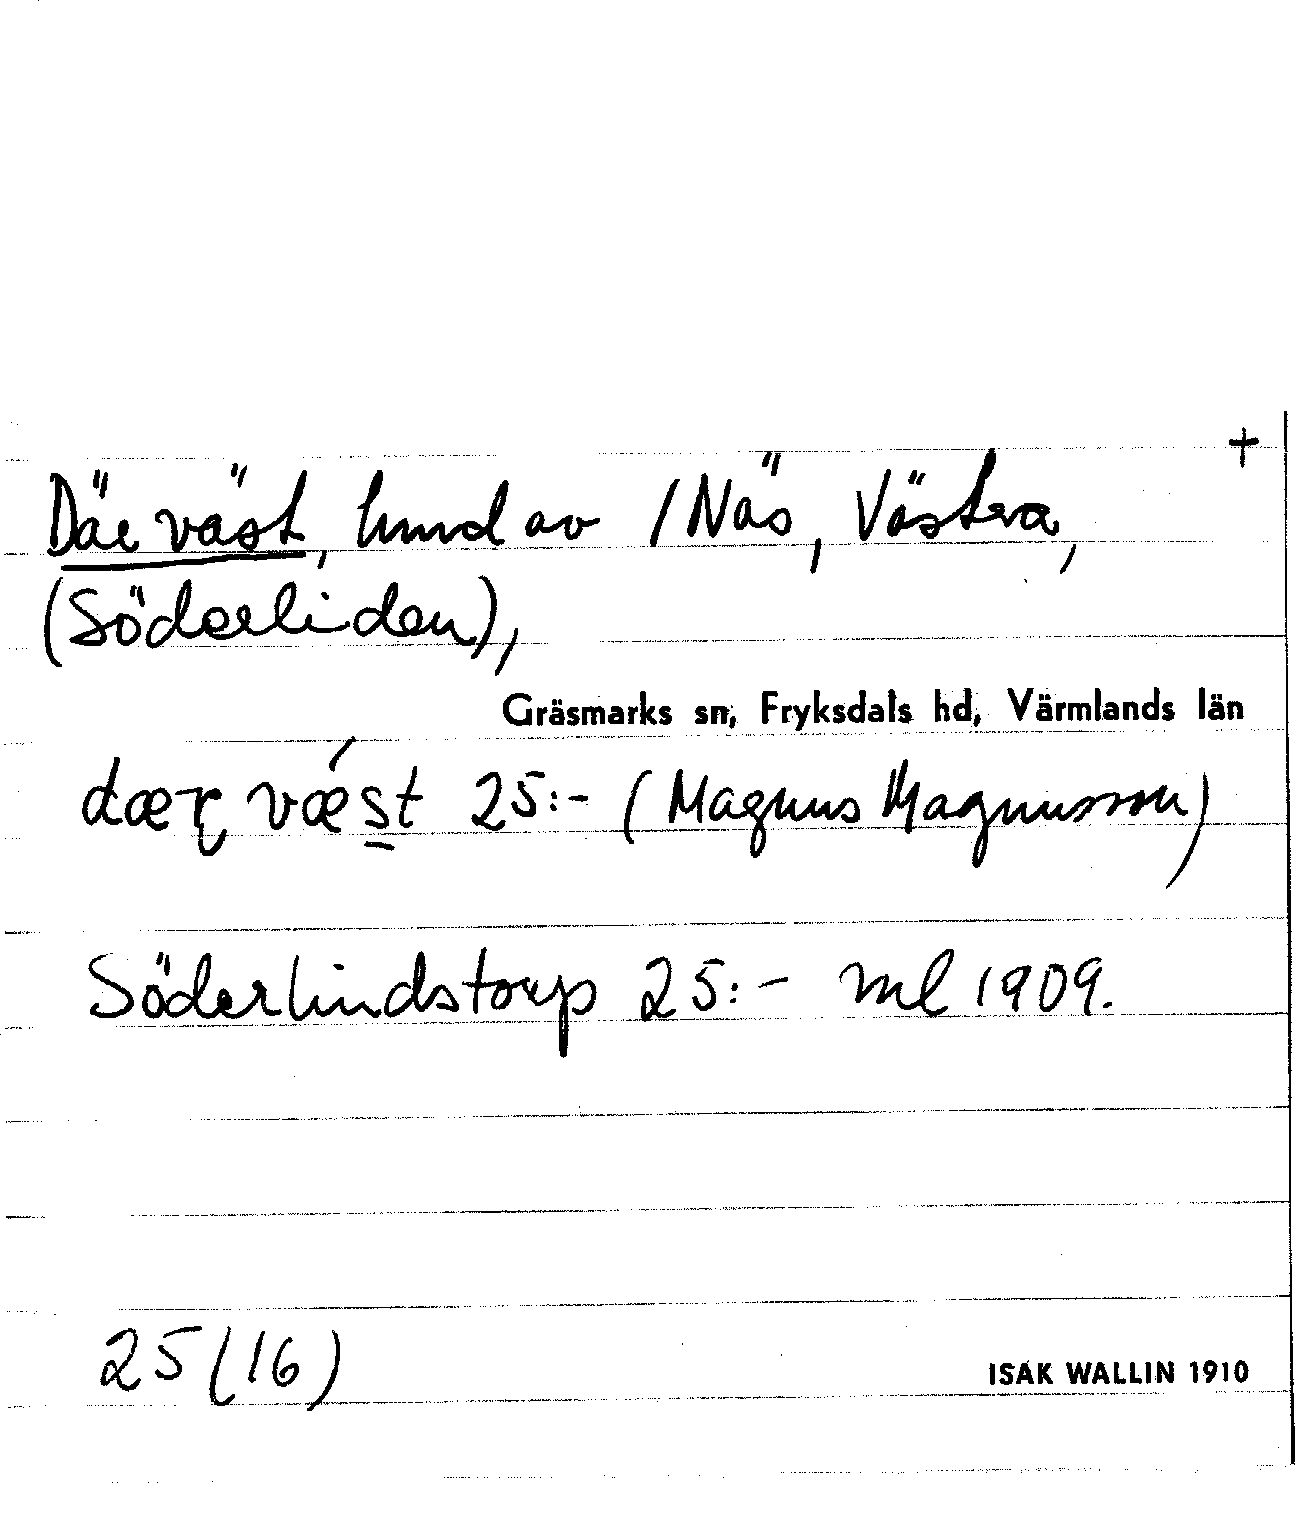 +
Där väst, hmd av / Näs, Västra,
(Söderliden),
Gräsmarks sn, Fryksdals hd, Värmlands län
dær vǽst 25:- (Magnus Magnusson)
Söderlindstorp 25:- ml 1909.
25 (16)
ISAK WALLIN 1910